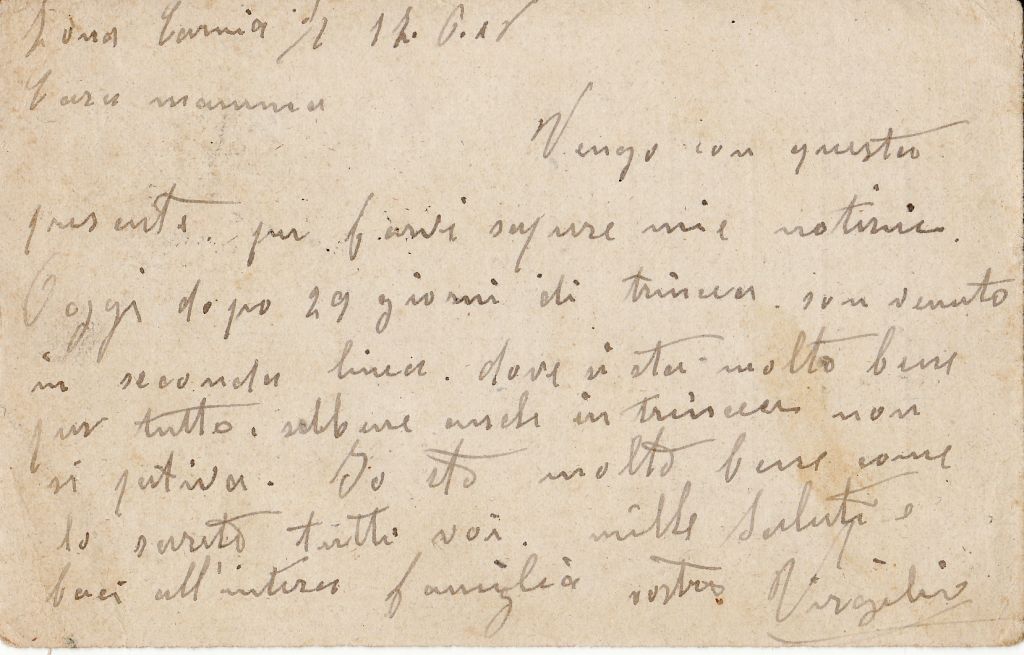 Zona Carnia li 12.6.18
Cara mamma
Vengo con questa
presente. per farvi sapere mie notizie.
Oggi dopo 29 giorni di trincea. son venuto
in seconda linea. dove si sta molto bene
per tutto, sebbene anche in trincea non
si pativa. Io stò molto bene come
lo sarete tutti voi. mille Saluti e
baci all'intera famiglia vostro Virgilio